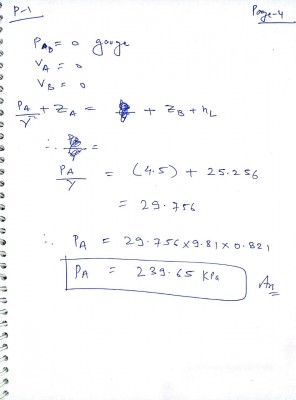 P-1
Page-4
P_AD = 0 gauge
V_A = 0
V_B = 0
P_A/γ + Z_A = + Z_B + h_L
∴ =
P_A/γ = (4.5) + 25.256
= 29.756
∴ P_A = 29.756 × 9.81 × 0.821
P_A = 239.65 KPa
An